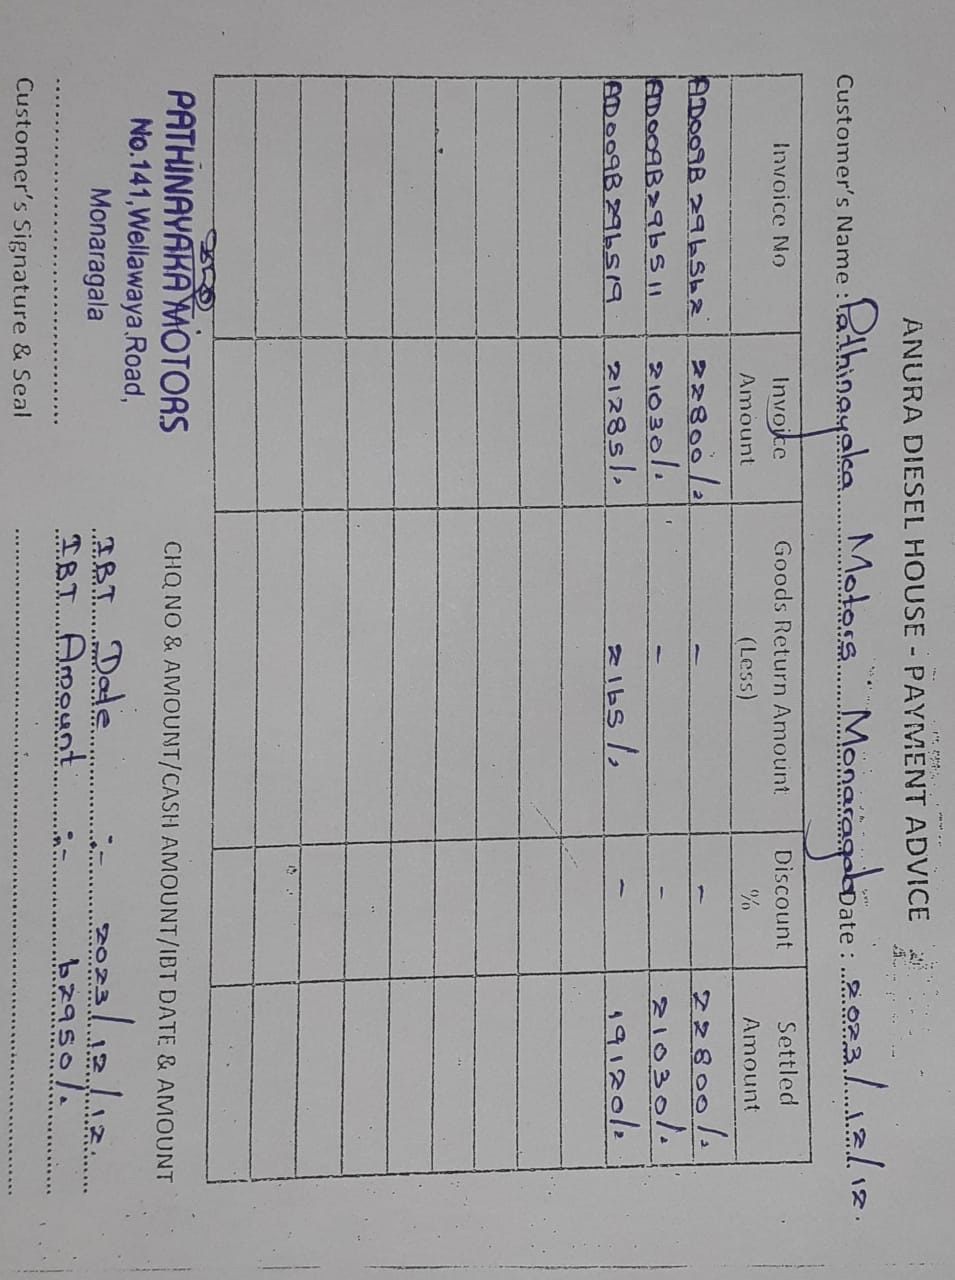 ANURA DIESEL HOUSE - PAYMENT ADVICE
Customer's Name : Pathinayaka Motors Monaragala Date : 2023/12/12.
Invoice No Invoice Amount Goods Return Amount (Less) Discount % Settled Amount
AD009B296562 22800/= - - 22800/=
AD009B296511 21030/= - - 21030/=
AD009B296519 21285/= 2165/= - 19120/=
PATHINAYAKA MOTORS
No.141,Wellawaya.Road,
Monaragala
Customer's Signature & Seal
CHQ NO & AMOUNT/CASH AMOUNT/IBT DATE & AMOUNT
IBT Date :- 2023/12/12.
IBT Amount :- 62950/=